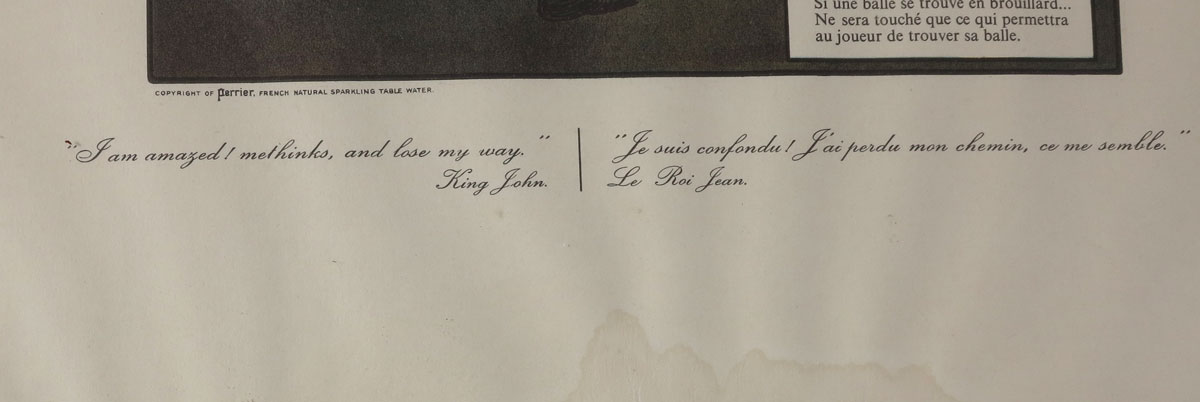 Si une balle se trouve en brouillard...
Ne sera touché que ce qui permettra
au joueur de trouver sa balle.
COPYRIGHT OF Perrier, FRENCH NATURAL SPARKLING TABLE WATER.
"I am amazed! methinks, and lose my way."
King John.
"Je suis confondu! J'ai perdu mon chemin, ce me semble."
Le Roi Jean.